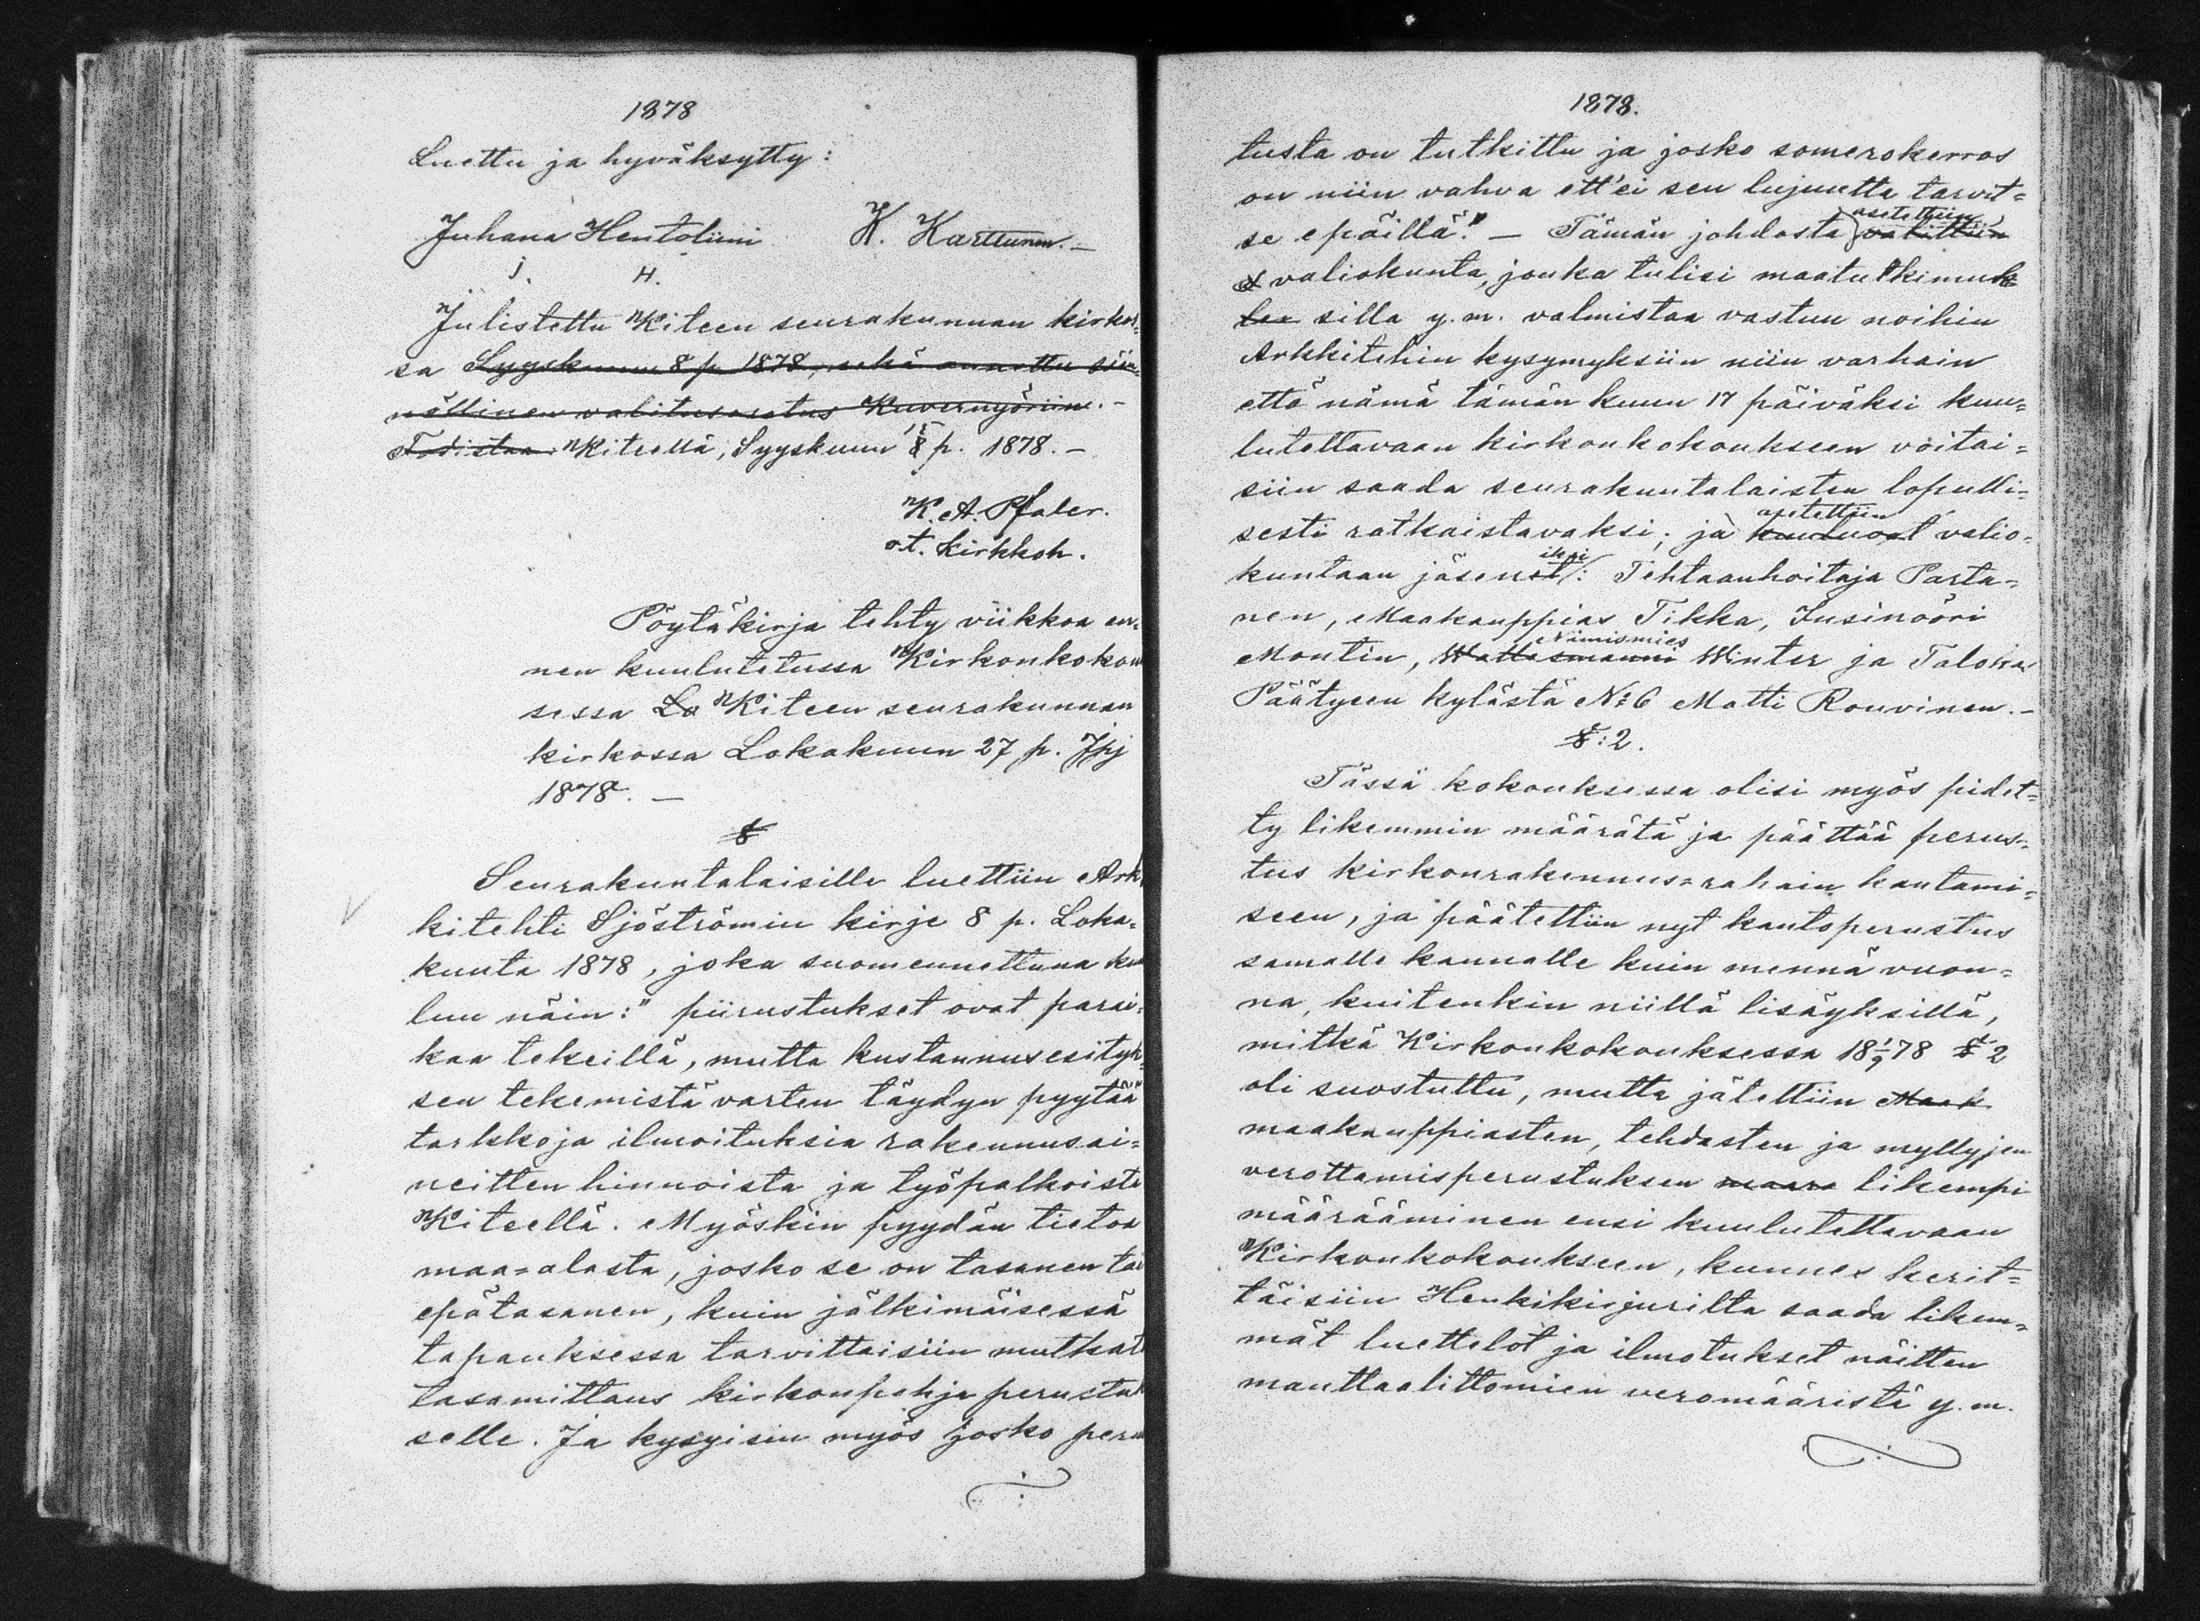 1878
Luettu ja hyväksytty:
Juhana Hentoliini K. Karttunen.–
J. H.
Julistettu Kiteen seurakunnan kirkos=
sa Syyskuun 8 p. 1878, sekä annettu
valitusosotus Kuvernyöriin.–
Todistaa: Kiteellä, Syyskuun 15 p. 1878.–
K. A. Pfaler.
v.t. kirkkoh.
Pöytäkirja tehty viikkoa en=
nen kuulutetussa Kirkonkokouk
sessa La Kiteen seurakunnan
kirkossa Lokakuun 27 p.
1878.–
§
Seurakuntalaisille luettiin Ark
kitehti Sjöströmin kirje 8 p. Loka=
kuuta 1878, joka suomennettuna kuu
luu näin:" piirustukset ovat parai=
kaa tekeillä, mutta kustannusesityk
sen tekemistä varten täydyn pyytää
tarkkoja ilmoituksia rakennusai=
neitten hinnoista ja työpalkoista
Kiteellä. Myöskin pyydän tietoa
maa=alasta, josko se on tasanen tai
epätasanen, kuin jälkimäisessä
tapauksessa tarvittaisiin mutkat
tasamittaus kirkonpohja perustuk
selle. Ja kysyisin myös josko peru
1878.
tusta on tutkittu ja josko somerokerros
on niin vahva ett'ei sen lujuutta tarvit=
se epäillä." – Tämän johdosta valittiin
asetettiin
valiokunta, jonka tulisi maatutkimuk
sen silla y.m. valmistaa vastuu noihin
Arkkitehin kysymyksiin niin varhain
että nämä tämän kuun 17 päiväksi kuu=
lutettavaan kirkonkokoukseen voitai=
siin saada seurakuntalaisten lopulli=
sesti ratkaistavaksi; ja kuuluvat valio=
asetettiin
kuntaan jäsenet: Tehtaanhoitaja Parta=
iksi
nen, Maakauppias Tikka, Insinööri
Montin, Wallesmanni Winter ja Talokas
Nimismies
Päätyeen kylästä N:6 Matti Rouvinen.–
§:2.
Tässä kokouksessa olisi myös pidet=
ty likemmin määrätä ja päättää perus=
tus kirkonrakennus=rahain kantami=
seen, ja päätettiin nyt kantoperustus
samalle kannalle kuin mennä vuon=
na, kuitenkin niillä lisäyksillä,
mitkä Kirkonkokouksessa 18 1/9 78 § 2
oli suostuttu, mutta jätettiin Maak
maakauppiasten, tehdasten ja myllyjen
verottamisperustuksen maara likempi
määrääminen ensi kuulutettavaan
Kirkonkokoukseen, kunnes kerit=
täisiin Henkikirjurilta saada likem=
mät luettelot ja ilmotukset näitten
manttaalittomien veromääristä y.m.